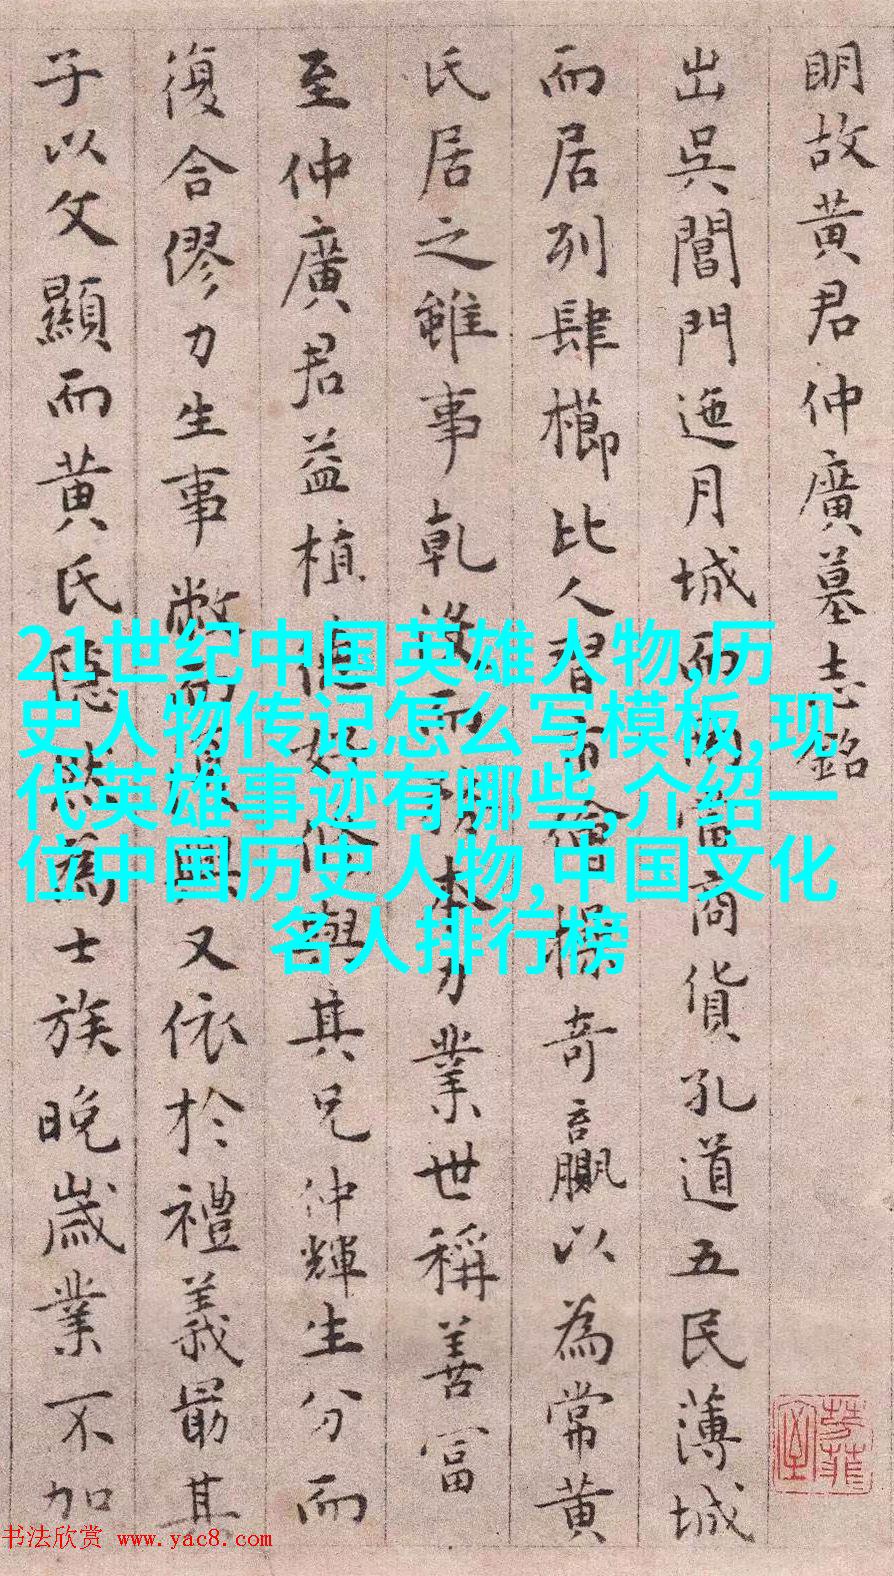 明故黄君仲廣墓志銘
出吳閶門迤月城而商富商貨孔道五民薄城
而居列肆櫛比人習市儈操奇贏以為常黄
氏居之雖事乾没而本力業世稱善富
至仲廣君益植好修與其兄仲輝生分而
復合僇力生事又依於禮義最其
子以文顯而黄氏隱然為士族晚歲業不加
21世纪中国英雄人物,历
史人物传记怎么写模板,现
代英雄事迹有哪些,介绍一
位中国历史人物,中国文化
名人排行榜
书法欣赏 www.yac8.com